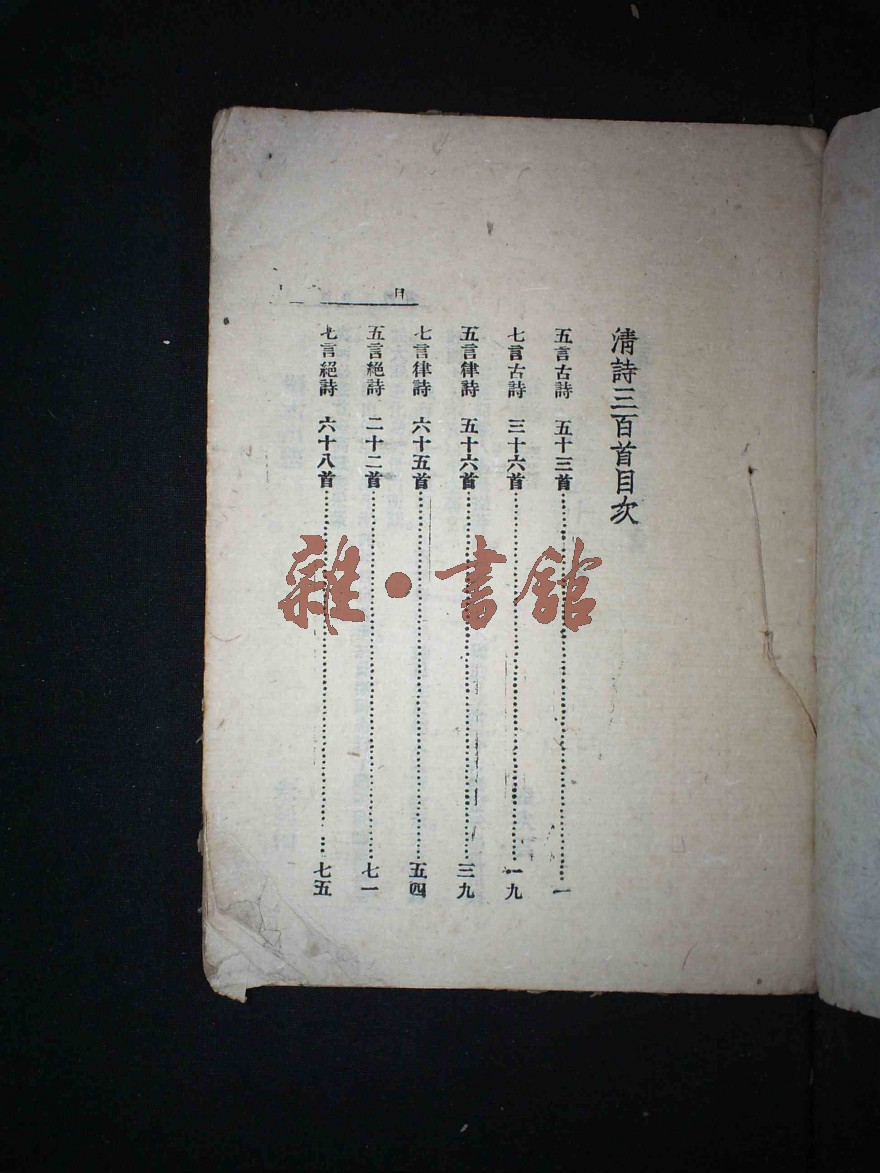 清詩三百首目次
五言古詩 五十三首……一
七言古詩 三十六首……一九
五言律詩 五十六首……三九
七言律詩 六十五首……五四
五言絕詩 二十二首……七一
七言絕詩 六十八首……七五
目
雜·書館